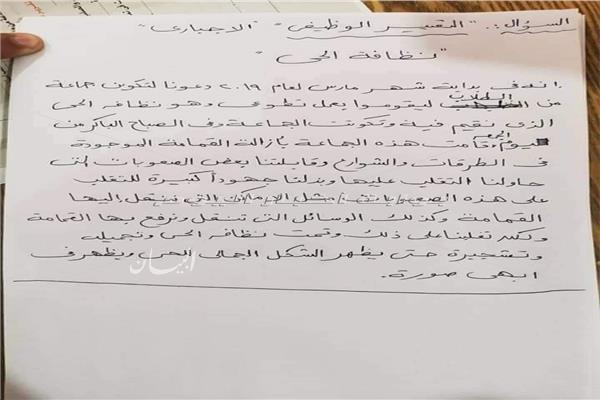 السؤال :. "التعبير الوظيفى" "الاجبارى"
"نظافة الحى"
فى بداية شهر مارس لعام ٢٠١٩ دعونا لتكوين جماعة
من الطلاب ليقوموا بعمل تطوعى وهو نظافه الحى
الذى نقيم فيه وتكونت الجماعة وفى الصباح الباكر من
يوم الجمعه قامت هذه الجماعة بأزالة القمامة الموجودة
فى الطرقات والشوارع وقابلتنا بعض الصعوبات التى
حاولنا التغلب عليها وبذلنا جهوداً كبيرة للتغلب
على هذه الصعوبات مثل الاماكن التي ننتقل إليها
القمامة وكذلك الوسائل التى تنتقل ونرفع بها القمامة
ولكنه تغلبنا على ذلك وتمت نظافه الحى وتجميله
وتشجيرة حتى يظهر الشكل الجمالى للحى ويظهر فى
ابهى صورة.
البيان